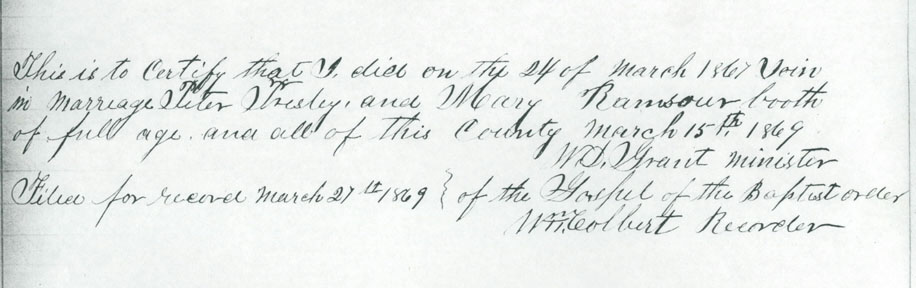 This is to Certify that I did on the 24 of March 1867 Join
in Marreage Peter Presley, and Mary Ramsour booth
of full age. and all of this County March 15th 1869
W.D. Grant minister
Filed for record March 27th 1869 } of the Gospel of the Baptist order
Wm Colbert Recorder